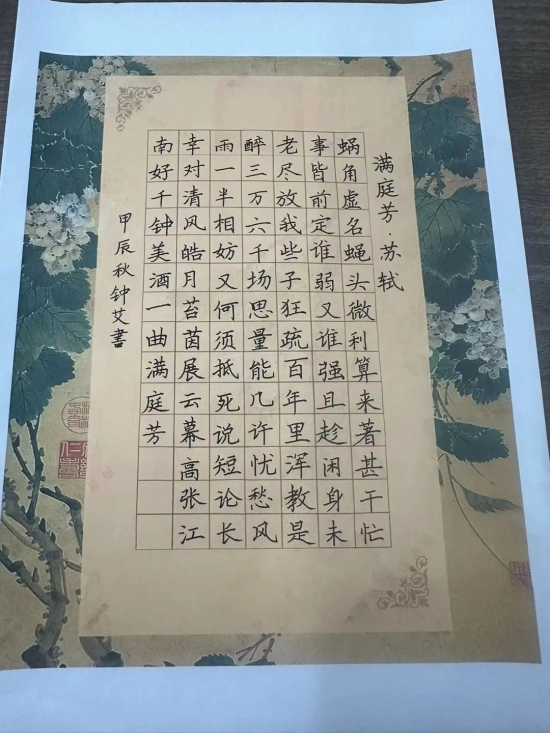 满庭芳·苏轼
蜗角虚名蝇头微利算来著甚干忙
事皆前定谁弱又谁强且趁闲身未
老尽放我些子狂疏百年里浑教是
醉三万六千场思量能几许忧愁风
雨一半相妨又何须抵死说短论长
幸对清风皓月苔茵展云幕高张江
南好千钟美酒一曲满庭芳
甲辰秋钟艾書